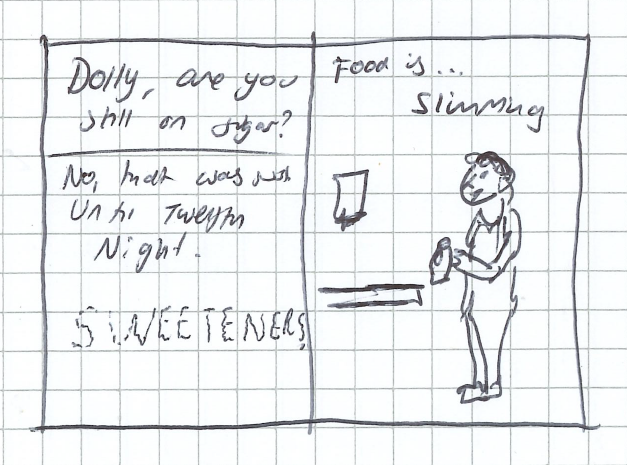 Dolly, are you
still on sugar?
No, that was just
Until Twelfth
Night.
SWEETENERS
Food is...
Slimming